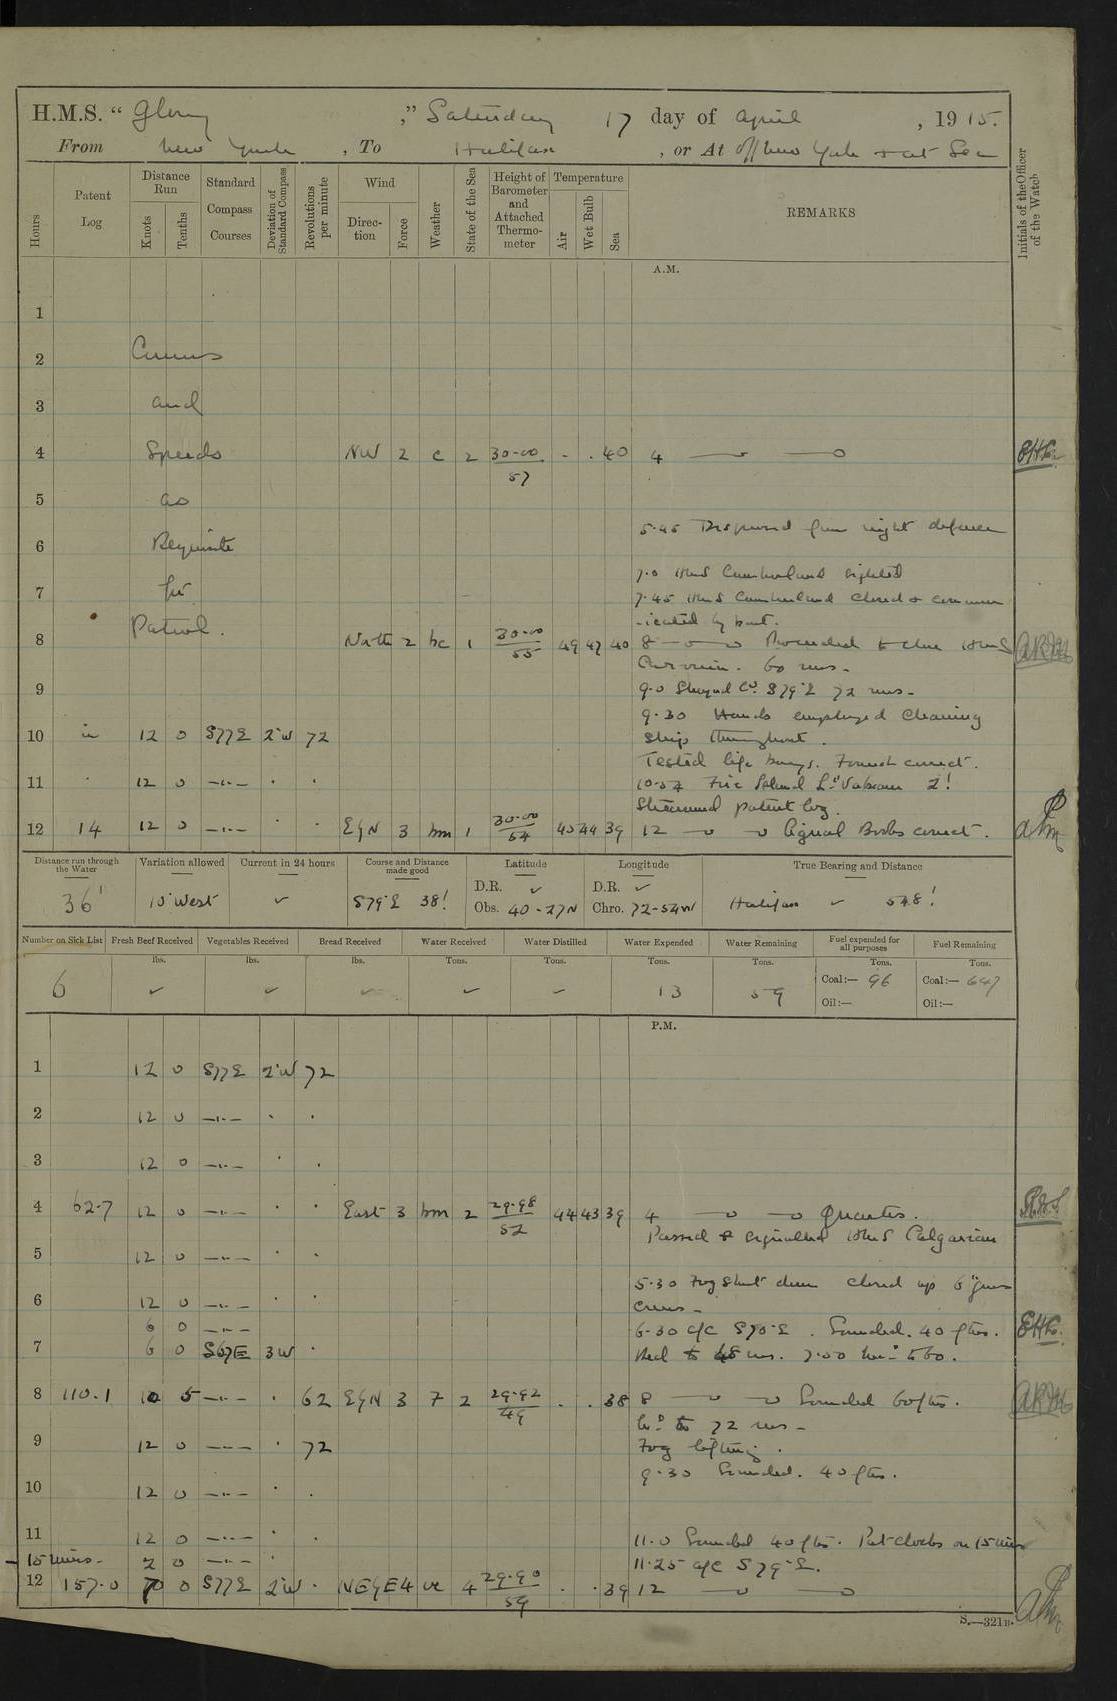 H.M.S. "Glory," Saturday 17 day of April, 1915.
From New York, To Halifax, or At off New York & at Sea
Hours
Patent Log
Distance Run
Knots
Tenths
Standard Compass Courses
Deviation of Standard Compass
Revolutions per minute
Wind
Direction
Force
Weather
State of the Sea
Height of Barometer and Attached Thermometer
Temperature
Air
Wet Bulb
Sea
REMARKS
Initials of the Officer of the Watch
A.M.
1
2 Courses
3 and
4 Speeds NW 2 c 2 30.00 57 - . 40 4
5 as
5.45 Dispersed from night defence
6 Requisite
7.0 HMS Cumberland sighted
7 for
7.45 HMS Cumberland closed & commun
-icated by boat.
Patrol.
8 North 2 bc 1 30.00 55 49 47 40 8 Proceeded to close HMS
Caronia. 60 revs.
9
9.0 Shaped Co. S79°E 72 revs.
9.30 Hands employed cleaning
10 in 12 0 S77E 2°W 72 ship throughout.
Tested life buoys. Found correct.
11 12 0 -"- 10.54 Fire Island Lt Vabeam 2!
Streamed patent log.
12 14 12 0 -"- EbN 3 bm 1 30.00 54 45 44 39 12 Signal Books correct.
Distance run through the Water
Variation allowed
Current in 24 hours
Course and Distance made good
Latitude
Longitude
True Bearing and Distance
36' 10° West ✓ S79°E 38! D.R. ✓ D.R. ✓
Obs. 40-27N Chro. 72-54W Halifax ✓ 548!
Number on Sick List
Fresh Beef Received
Vegetables Received
Bread Received
Water Received
Water Distilled
Water Expended
Water Remaining
Fuel expended for all purposes
Fuel Remaining
lbs. lbs. lbs. Tons. Tons. Tons. Tons. Tons. Tons.
6 ✓ ✓ ✓ ✓ ✓ 13 59 Coal:— 96 Coal:— 647
Oil:— Oil:—
P.M.
1 12 0 S77E 2°W 72
2 12 0 -"- " "
3 12 0 -"- " "
4 62.7 12 0 -"- " " East 3 bm 2 29.98 52 44 43 39 4 Quarters.
Passed & signalled HMS Calgarian
5 12 0 -"- " "
5.30 Fog shut down closed up 6" guns
6 12 0 -"- " " crews.
6 0 -"- 6.30 a/c S70°E. Sounded. 40 fms.
7 6 0 S67E 3W " Red to 48 revs. 7.00 Incd to 60.
8 110.1 10 5 -"- " 62 EbN 3 F 2 29.92 49 . . 38 8 Sounded 60 fms.
Incd to 72 revs.
9 12 0 -"- " 72 Fog lifting.
9.30 Sounded. 40 fms.
10 12 0 -"- " "
11 12 0 -"- " " 11.0 Sounded 40 fms. Put clocks on 15 mins
15 mins. 2 0 -"- " 11.25 a/c S79°E.
12 157.0 7 0 S77E 2°W " NEbE 4 oc 4 29.90 59 . . 39 12
S.—321B.